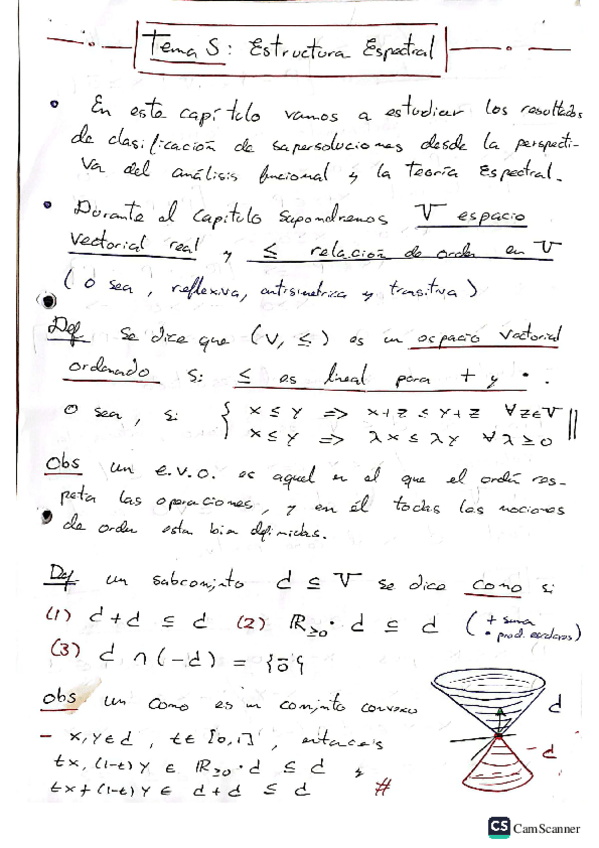 Tema 5: Estructura Espectral
• En este capítulo vamos a estudiar los resultados
de clasificación de supersoluciones desde la perspecti-
va del análisis funcional y la teoría espectral.
• Durante el capítulo supondremos V espacio
vectorial real y ≤ relación de orden en V
(o sea, reflexiva, antisimétrica y transitiva)
Def Se dice que (V, ≤) es un espacio vectorial
ordenado si ≤ es lineal para + y •.
O sea, si { x ≤ y => x+z ≤ y+z ∀z∈V
x ≤ y => λx ≤ λy ∀λ≥0
Obs un e.v.o. es aquel en el que el orden res-
peta las operaciones, y en él todas las nociones
de orden estan bien definidas.
Def un subconjunto d ⊆ V se dice cono si
(1) d+d ⊆ d (2) ℝ≥0 · d ⊆ d (+ suma
• prod. escalares)
(3) d ∩ (-d) = {ō}
Obs un cono es un conjunto convexo
- x,y∈d, t∈[0,1], entonces
tx, (1-t)y ∈ ℝ≥0 · d ⊆ d y
tx+(1-t)y ∈ d+d ⊆ d #
d
-d
CS CamScanner